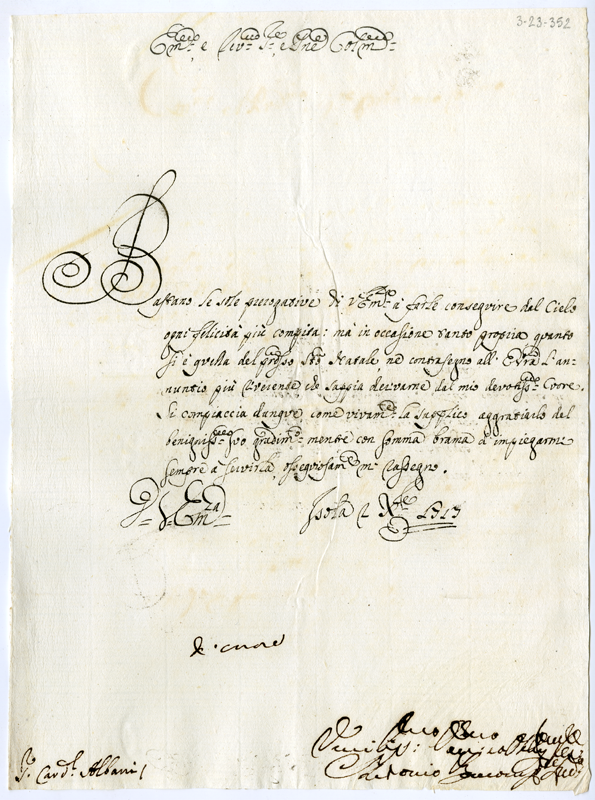 3-23-352
Em.mo e Rev.mo Sig.re e P̃ne Col.mo
Bastano le sole prerogative di V. Em.za à farle conseguire dal Cielo
ogni felicità più compita: mà in occasione tanto propria quanto
si è quella del pross.o S.mo Natale, ne contrasegno all' E.V. Rma l'an-
nuntio più riverende che sappia derivarne dal mio devotiss.o Core.
Si compiaccia dunque come vivam.te la supplico aggratiarlo del
benigniss.o suo gradim.to mentre con somma brama d'impiegarmi
sempre a servirla, ossequiosam.te mi rassegno.
D. V. Em.za
Isola 2 Xbre 1717
de cuore
Um.mo Dev.mo
Antonio
S.r Card.l Albani